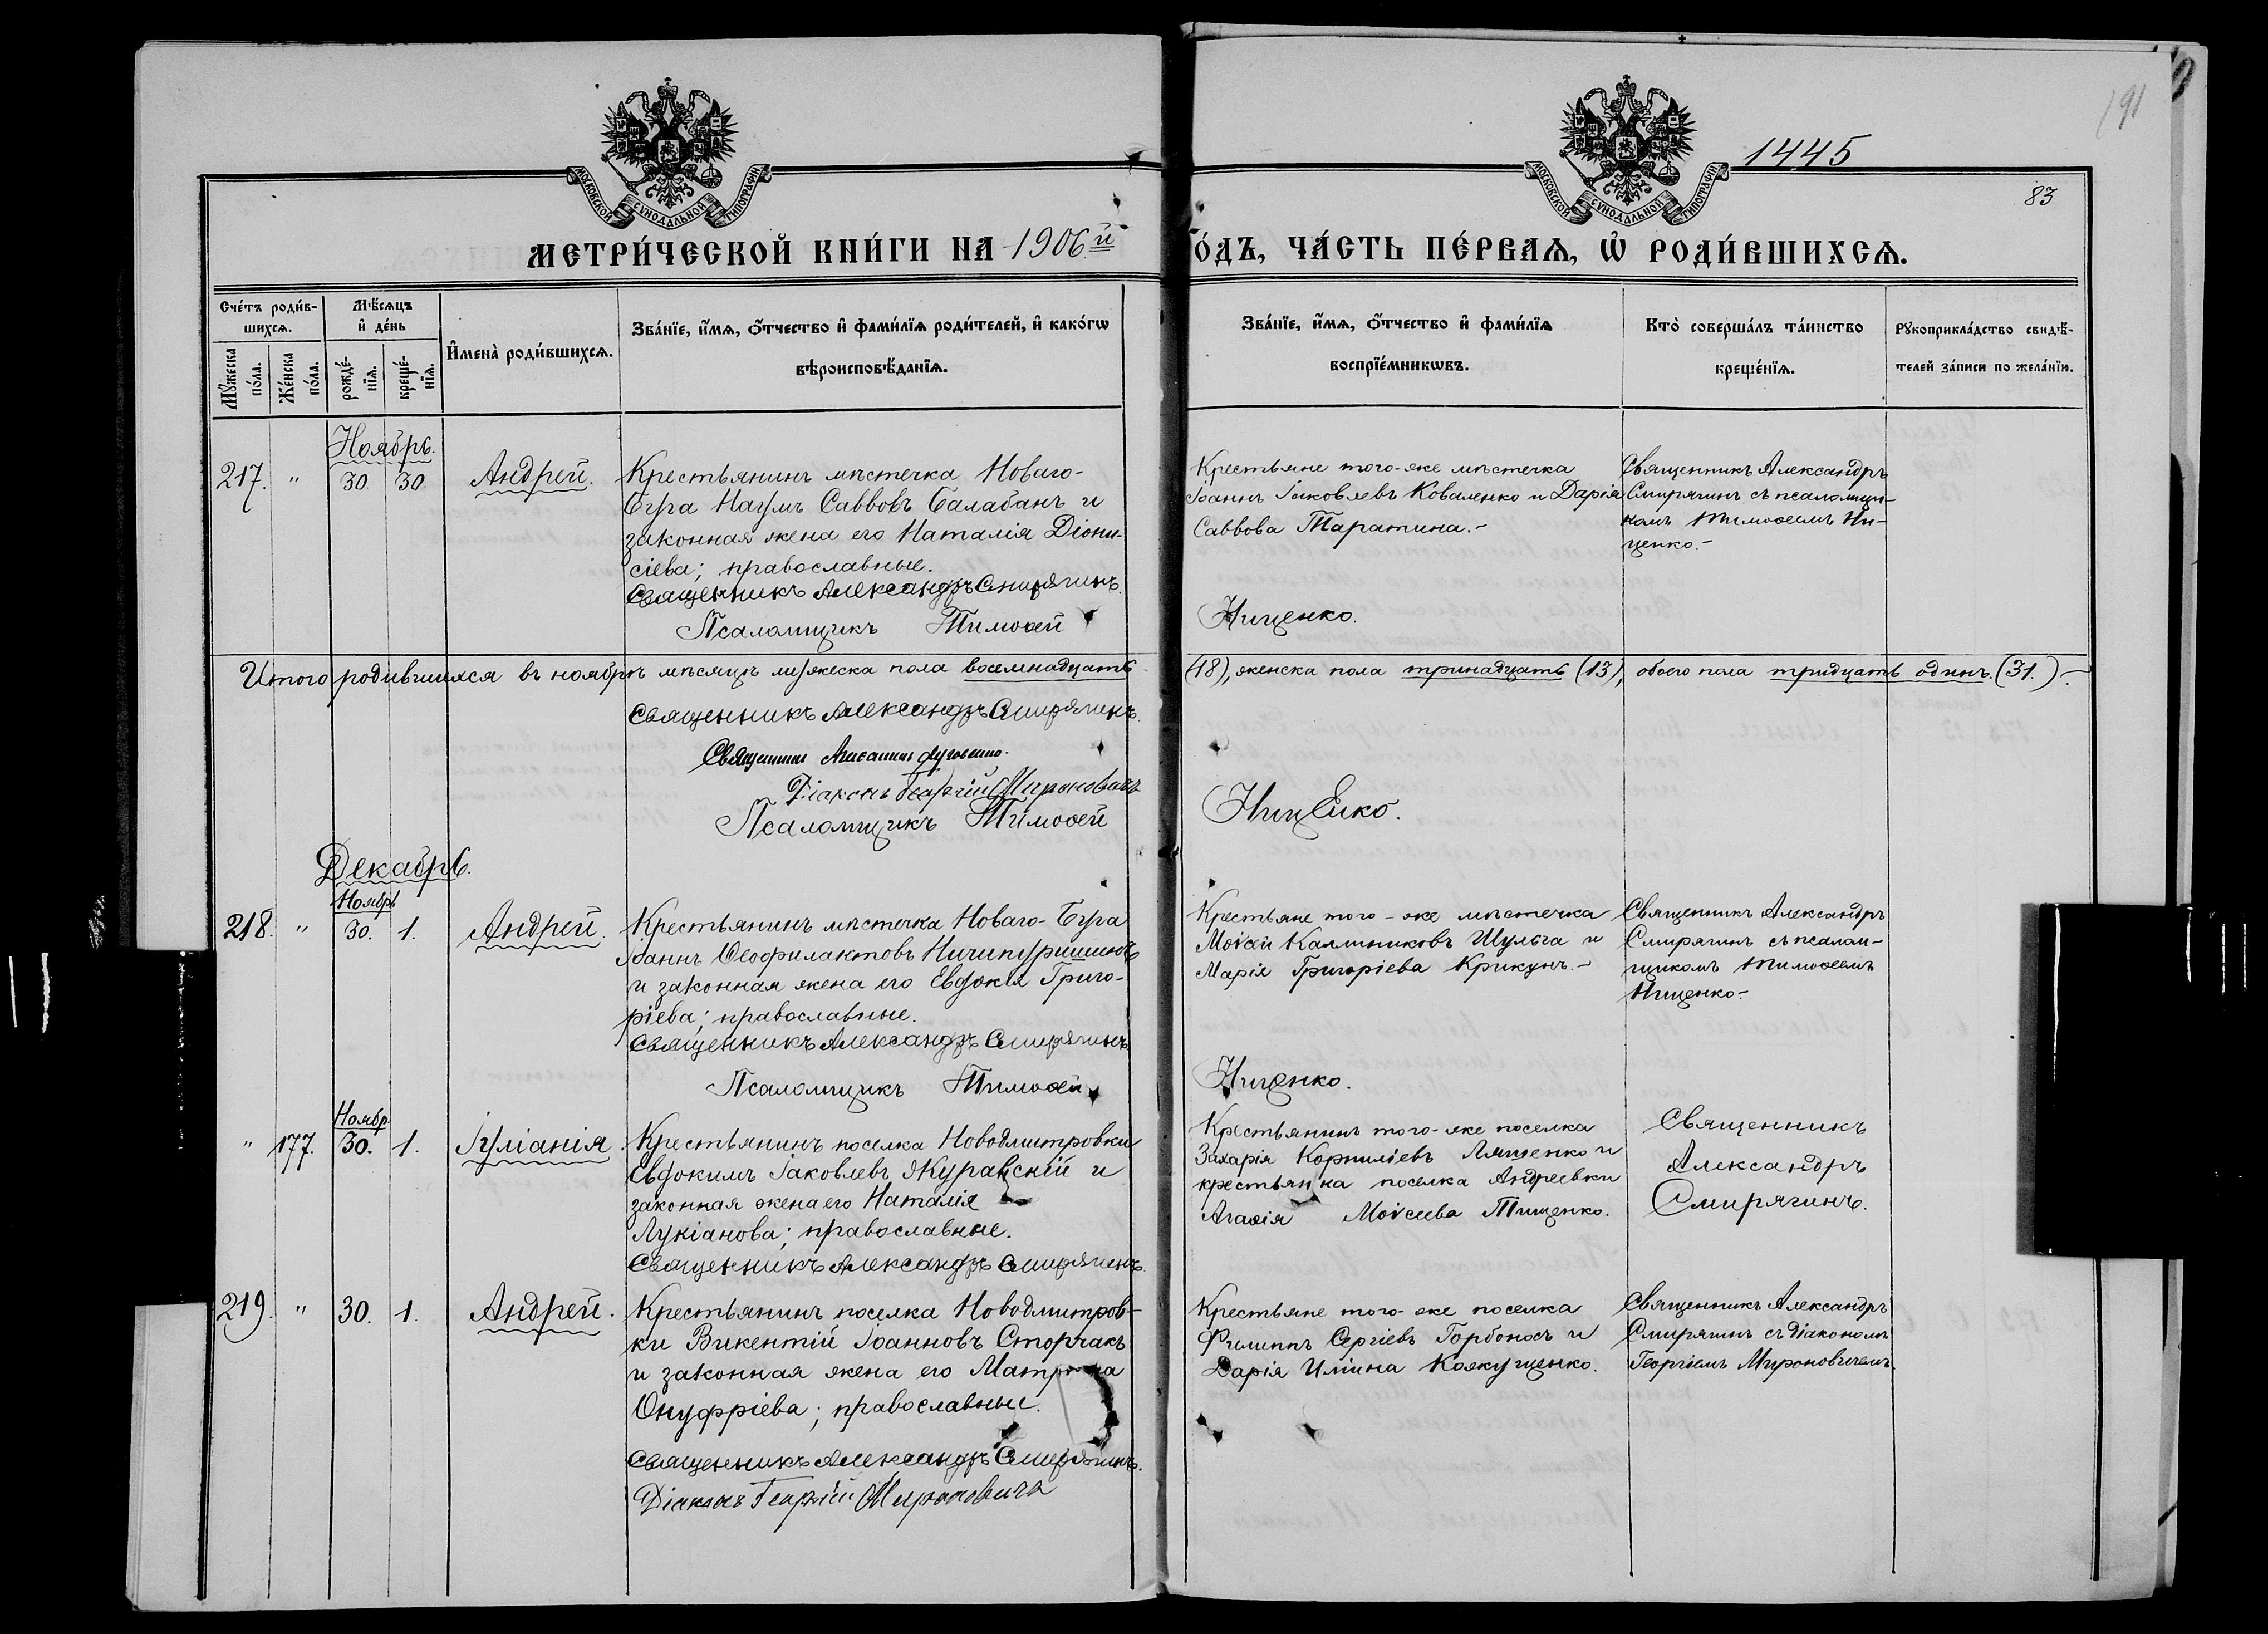 191
1445
83
МОСКОВСКОЙ СѴНОДАЛЬНОЙ ТИПОГРАФІИ
МОСКОВСКОЙ СѴНОДАЛЬНОЙ ТИПОГРАФІИ
МЕТРИ́ЧЕСКОЙ КНИ́ГИ НА 1906.й
О́ДЪ, ЧА́СТЬ ПЕ́РВАѦ, Ѽ РОДИ́ВШИХСѦ.
Сче́тъ роди́в-
шихсѧ.
Мꙋ́жеска
по́ла.
Же́нска
по́ла.
Мѣ́сѧцъ
и҆ де́нь
рожде́-
нїѧ.
креще́-
нїѧ.
И҆мена̀ роди́вшихсѧ.
Зва́нїе, и҆́мѧ, ѻ҆́тчество и҆ фами́лїѧ роди́телей, и҆ како́гѡ
вѣроисповѣ́данїѧ.
Зва́нїе, и҆́мѧ, ѻ҆́тчество и҆ фами́лїѧ
воспрїе́мникѡвъ.
Кто̀ соверша́лъ та́инство
креще́нїѧ.
Рꙋкоприкла́дство свидѣ́-
телей за́писи по жела́нїю.
Ноябрь.
217. " 30. 30. Андрей.
Крестьянинъ мѣстечка Новаго-
Буга Наумъ Саввовъ Балабанъ и
законная жена его Наталія Діони-
сіева; православные.
Священникъ Александръ Смирягинъ.
Псаломщикъ Тимоѳей Нищенко.
Крестьяне того-же мѣстечка
Іоаннъ Іаковлевъ Коваленко и Дарія
Саввова Таратина.-
Священникъ Александръ
Смирягинъ съ псаломщи-
комъ Тимоѳеемъ Ни-
щенко.-
Итого родившихся въ ноябрѣ мѣсяцѣ мужеска пола восемнадцать (18), женска пола тринадцать (13), обоего пола тридцать одинъ. (31.)-
Священникъ Александръ Смирягинъ.
Священникъ
Діаконъ Георгій Мироновичъ
Псаломщикъ Тимоѳей Нищенко.
Декабрь.
Ноябрь
218. " 30. 1. Андрей.
Крестьянинъ мѣстечка Новаго-Буга
Іоаннъ Ѳеофилактовъ Ничипуришинъ
и законная жена его Евдокія Григо-
ріева; православные.
Священникъ Александръ Смирягинъ.
Псаломщикъ Тимоѳей Нищенко.
Крестьяне того-же мѣстечка
Моѵсей Каллиниковъ Шульга и
Марія Григоріева Крикунъ.-
Священникъ Александръ
Смирягинъ съ псалом-
щикомъ Тимоѳеемъ
Нищенко.-
Ноябр.
" 177. 30. 1. Іуліанія.
Крестьянинъ поселка Новодмитровки
Евдокимъ Іаковлевъ Журавскій и
законная жена его Наталія
Лукіанова; православные.
Священникъ Александръ Смирягинъ.
Крестьянинъ того-же поселка
Захарія Корниліевъ Ляшенко и
крестьянка поселка Андреевки
Агаѳія Моѵсеева Тищенко.
Священникъ
Александръ
Смирягинъ.
219. " 30. 1. Андрей.
Крестьянинъ поселка Новодмитров-
ки Викентій Іоанновъ Сторчакъ
и законная жена его Матрона
Онуфріева; православные.
Священникъ Александръ Смирягинъ.
Діаконъ Георгій Мироновичъ
Крестьяне того-же поселка
Филиппъ Сергіевъ Горбоносъ и
Дарія Иліина Кожущенко.
Священникъ Александръ
Смирягинъ съ діакономъ
Георгіемъ Мироновичемъ.